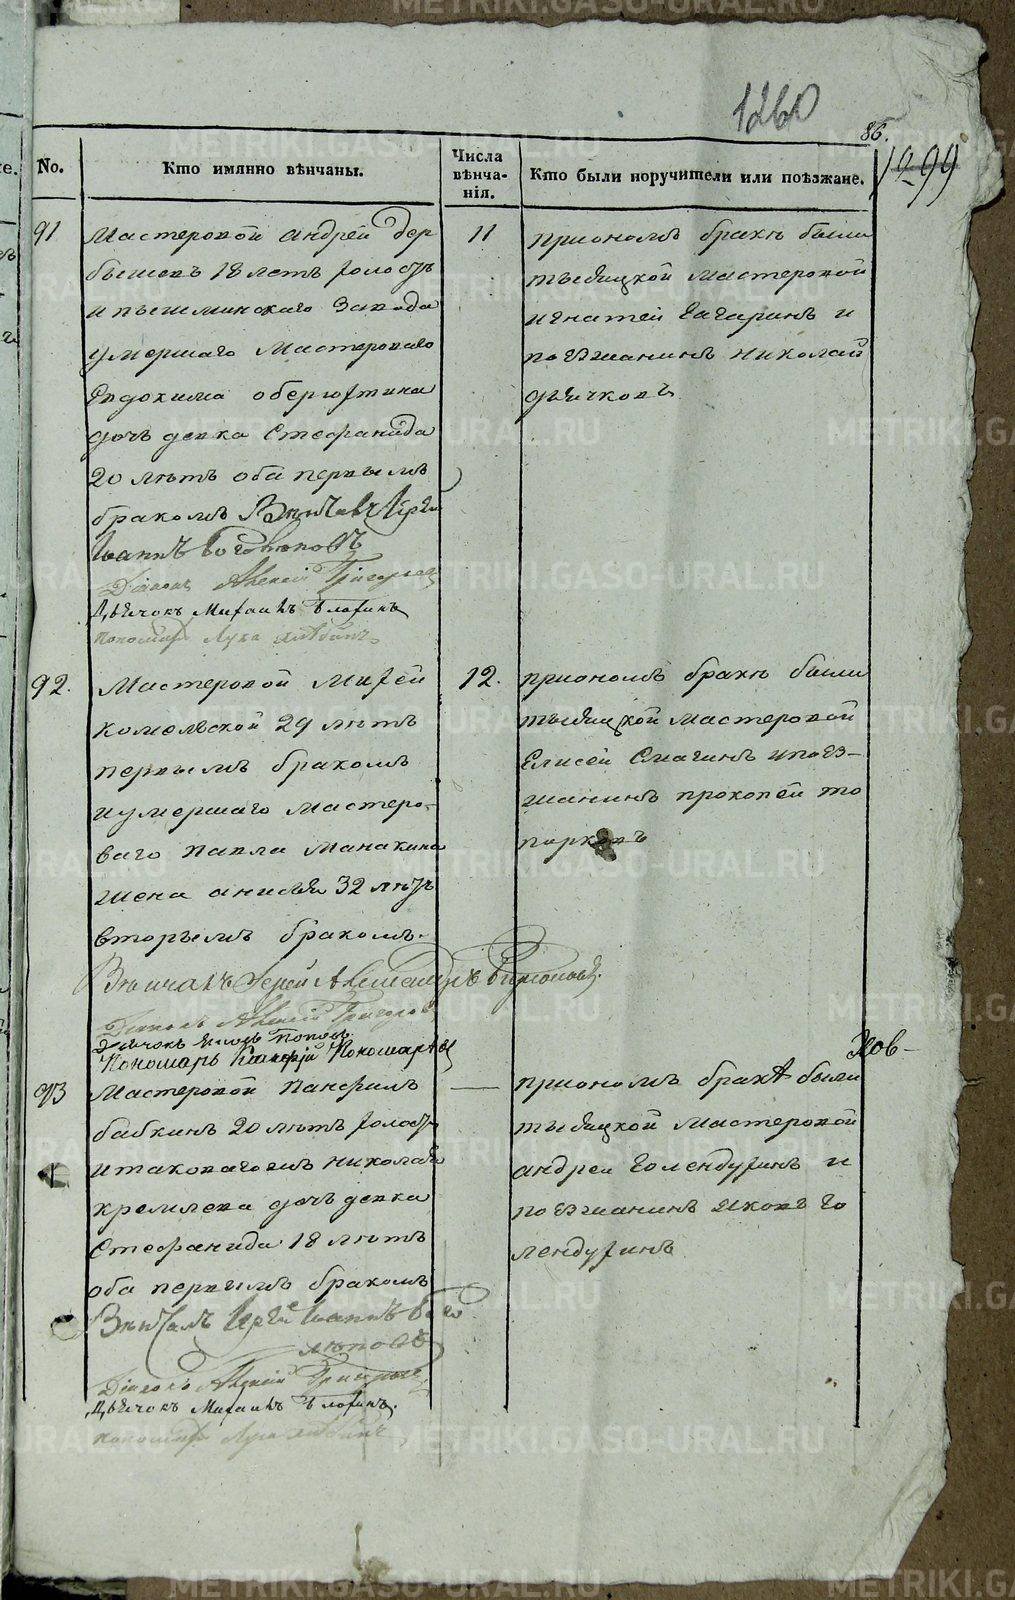 1260
86.
1299
No.
Кто имянно вѣнчаны.
Числа вѣнча-нія.
Кто были поручители или поѣзжане.
91
Мастеровой андрей дер
бышевъ 18 летъ холостъ
ипышминскаго Завода
умершаго Мастероваго
Евдокима оберюхтина
дочь девка Стефанида
20 лѣтъ оба первымъ
бракомъ Вѣнчалъ Іерей
Іоаннъ Боголюповъ
Діаконъ Алексій Григорьев
Дьячокъ Михаилъ
пономарь Лука
11
приономъ браке были
тъ мастеровой
игнатей гагаринъ и
поезжанинъ николай
дьячковъ
92.
Мастеровой михей
комельской 29 лѣтъ
первымъ бракомъ
иумершаго мастеро-
ваго павла манакина
жена анисья 32 лѣтъ
вторымъ бракомъ.
Вѣнчалъ Іерей Александръ
Діаконъ Алексій Григорьев
Дьячокъ Попов
Пономарь Валерій Пономарёв
12.
приономъ браке были
мастеровой
Елисей Смагинъ ипоез-
жанинъ прокопей то
порковъ
93
Мастеровой панфилъ
бабкинъ 20 лѣтъ холостъ
итаковагожъ николая
кремлева дочь девка
Стефанида 18 лѣтъ
оба первымъ бракомъ
Вѣнчалъ Іерей Іоаннъ Бого
люповъ
Діаконъ Алексій Григорьев
Дьячокъ Михаилъ
пономарь Лука
приономъ браке были
мастеровой
андрей голендухинъ и
поезжанинъ яковъ го
лендухинъ
METRIKI.GASO-URAL.RU